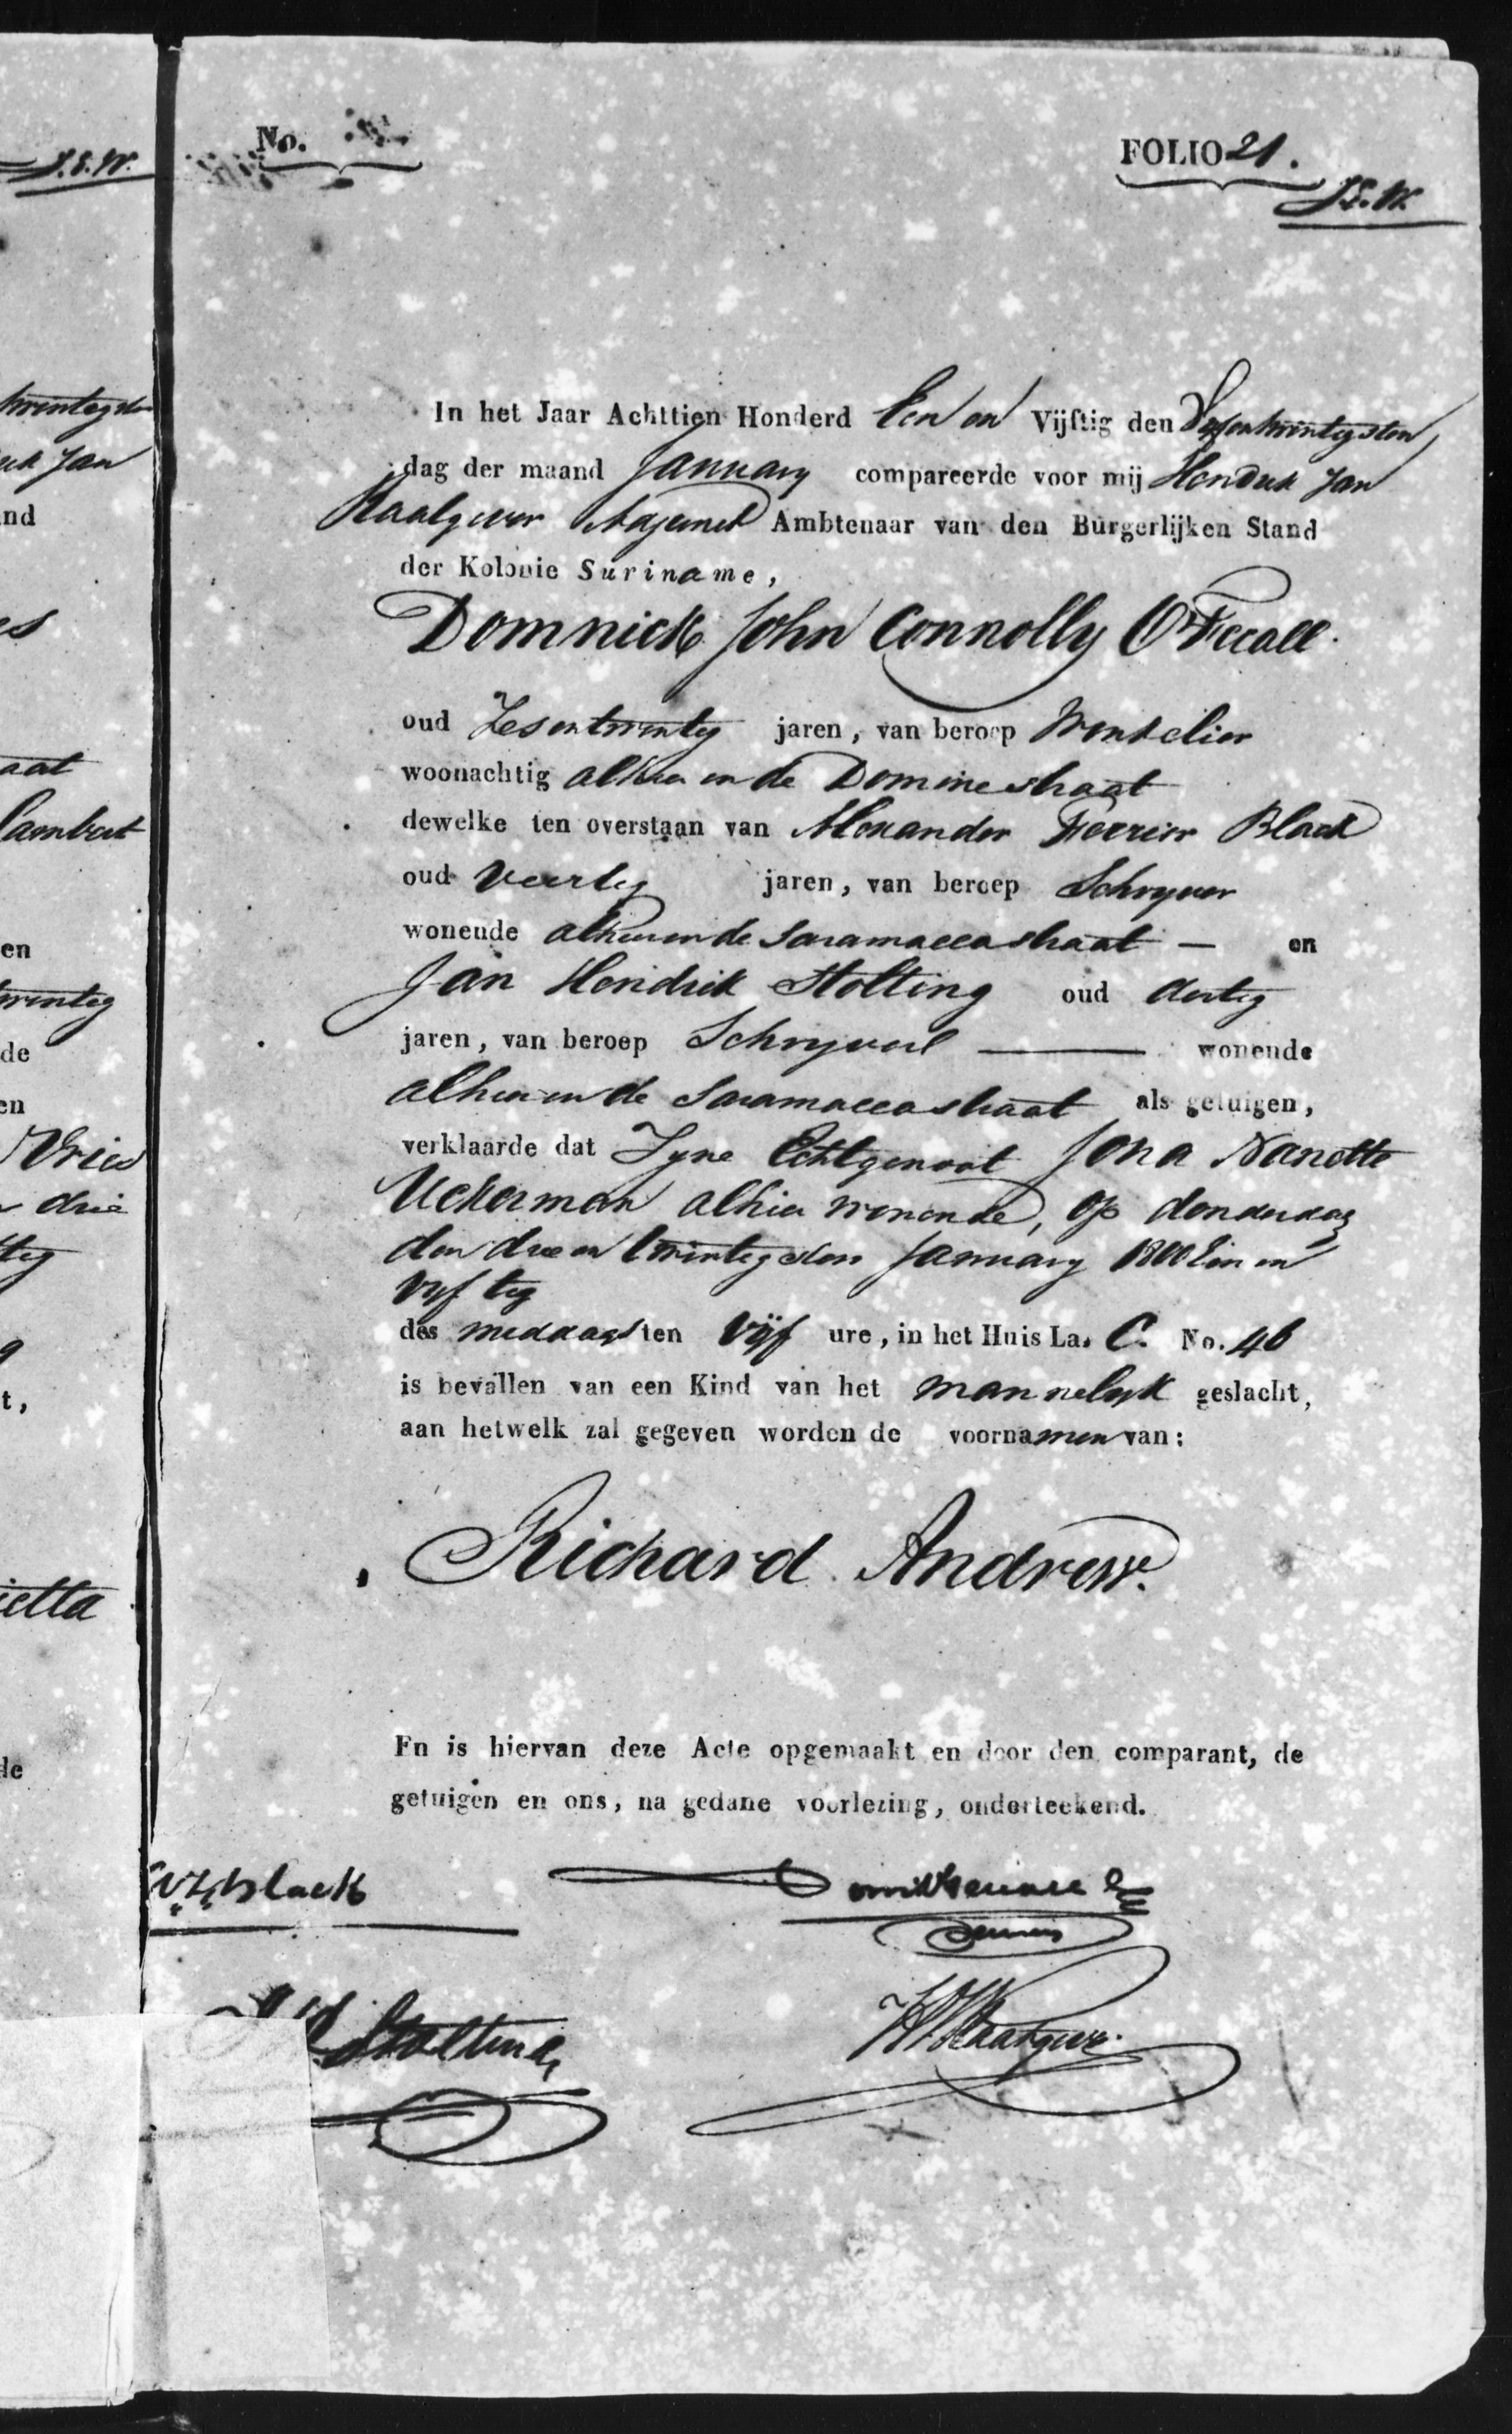 No.
FOLIO 21.
J.S.W.
In het Jaar Achttien Honderd Een en Vijftig den
dag der maand January compareerde voor mij Hendrik Jan
Raalgever Adjunct Ambtenaar van den Burgerlijken Stand
der Kolonie Suriname,
Domnick John Connolly O'Ferrall.
oud Zesentwintig jaren, van beroep Winkelier
woonachtig alhier in de Dominestraat
dewelke ten overstaan van Alexander Ferrier Black
oud Veertig jaren, van beroep Schryver
wonende alhier in de Saramaccastraat — en
Jan Hendrik Stolting oud dertig
jaren, van beroep Schryver — wonende
alhier in de Saramaccastraat als getuigen,
verklaarde dat Zyne Echtgenoot Nanette
Uckerman alhier wonende, op donderdag
den drie en twintigsten January 1800 Een en
Vyftig
des middags ten Vijf ure, in het Huis La. C. No. 46
is bevallen van een Kind van het mannelyk geslacht,
aan hetwelk zal gegeven worden de voornamen van:
Richard Andrew.
En is hiervan deze Acte opgemaakt en door den comparant, de
getuigen en ons, na gedane voorlezing, onderteekend.
Black
Stolting
HJRaalgever
J.S.W.
twintigsten
Jan
nd
es
aat
Lambert
en
twintig
de
en
Vries
drie
tig
t,
ietta
de